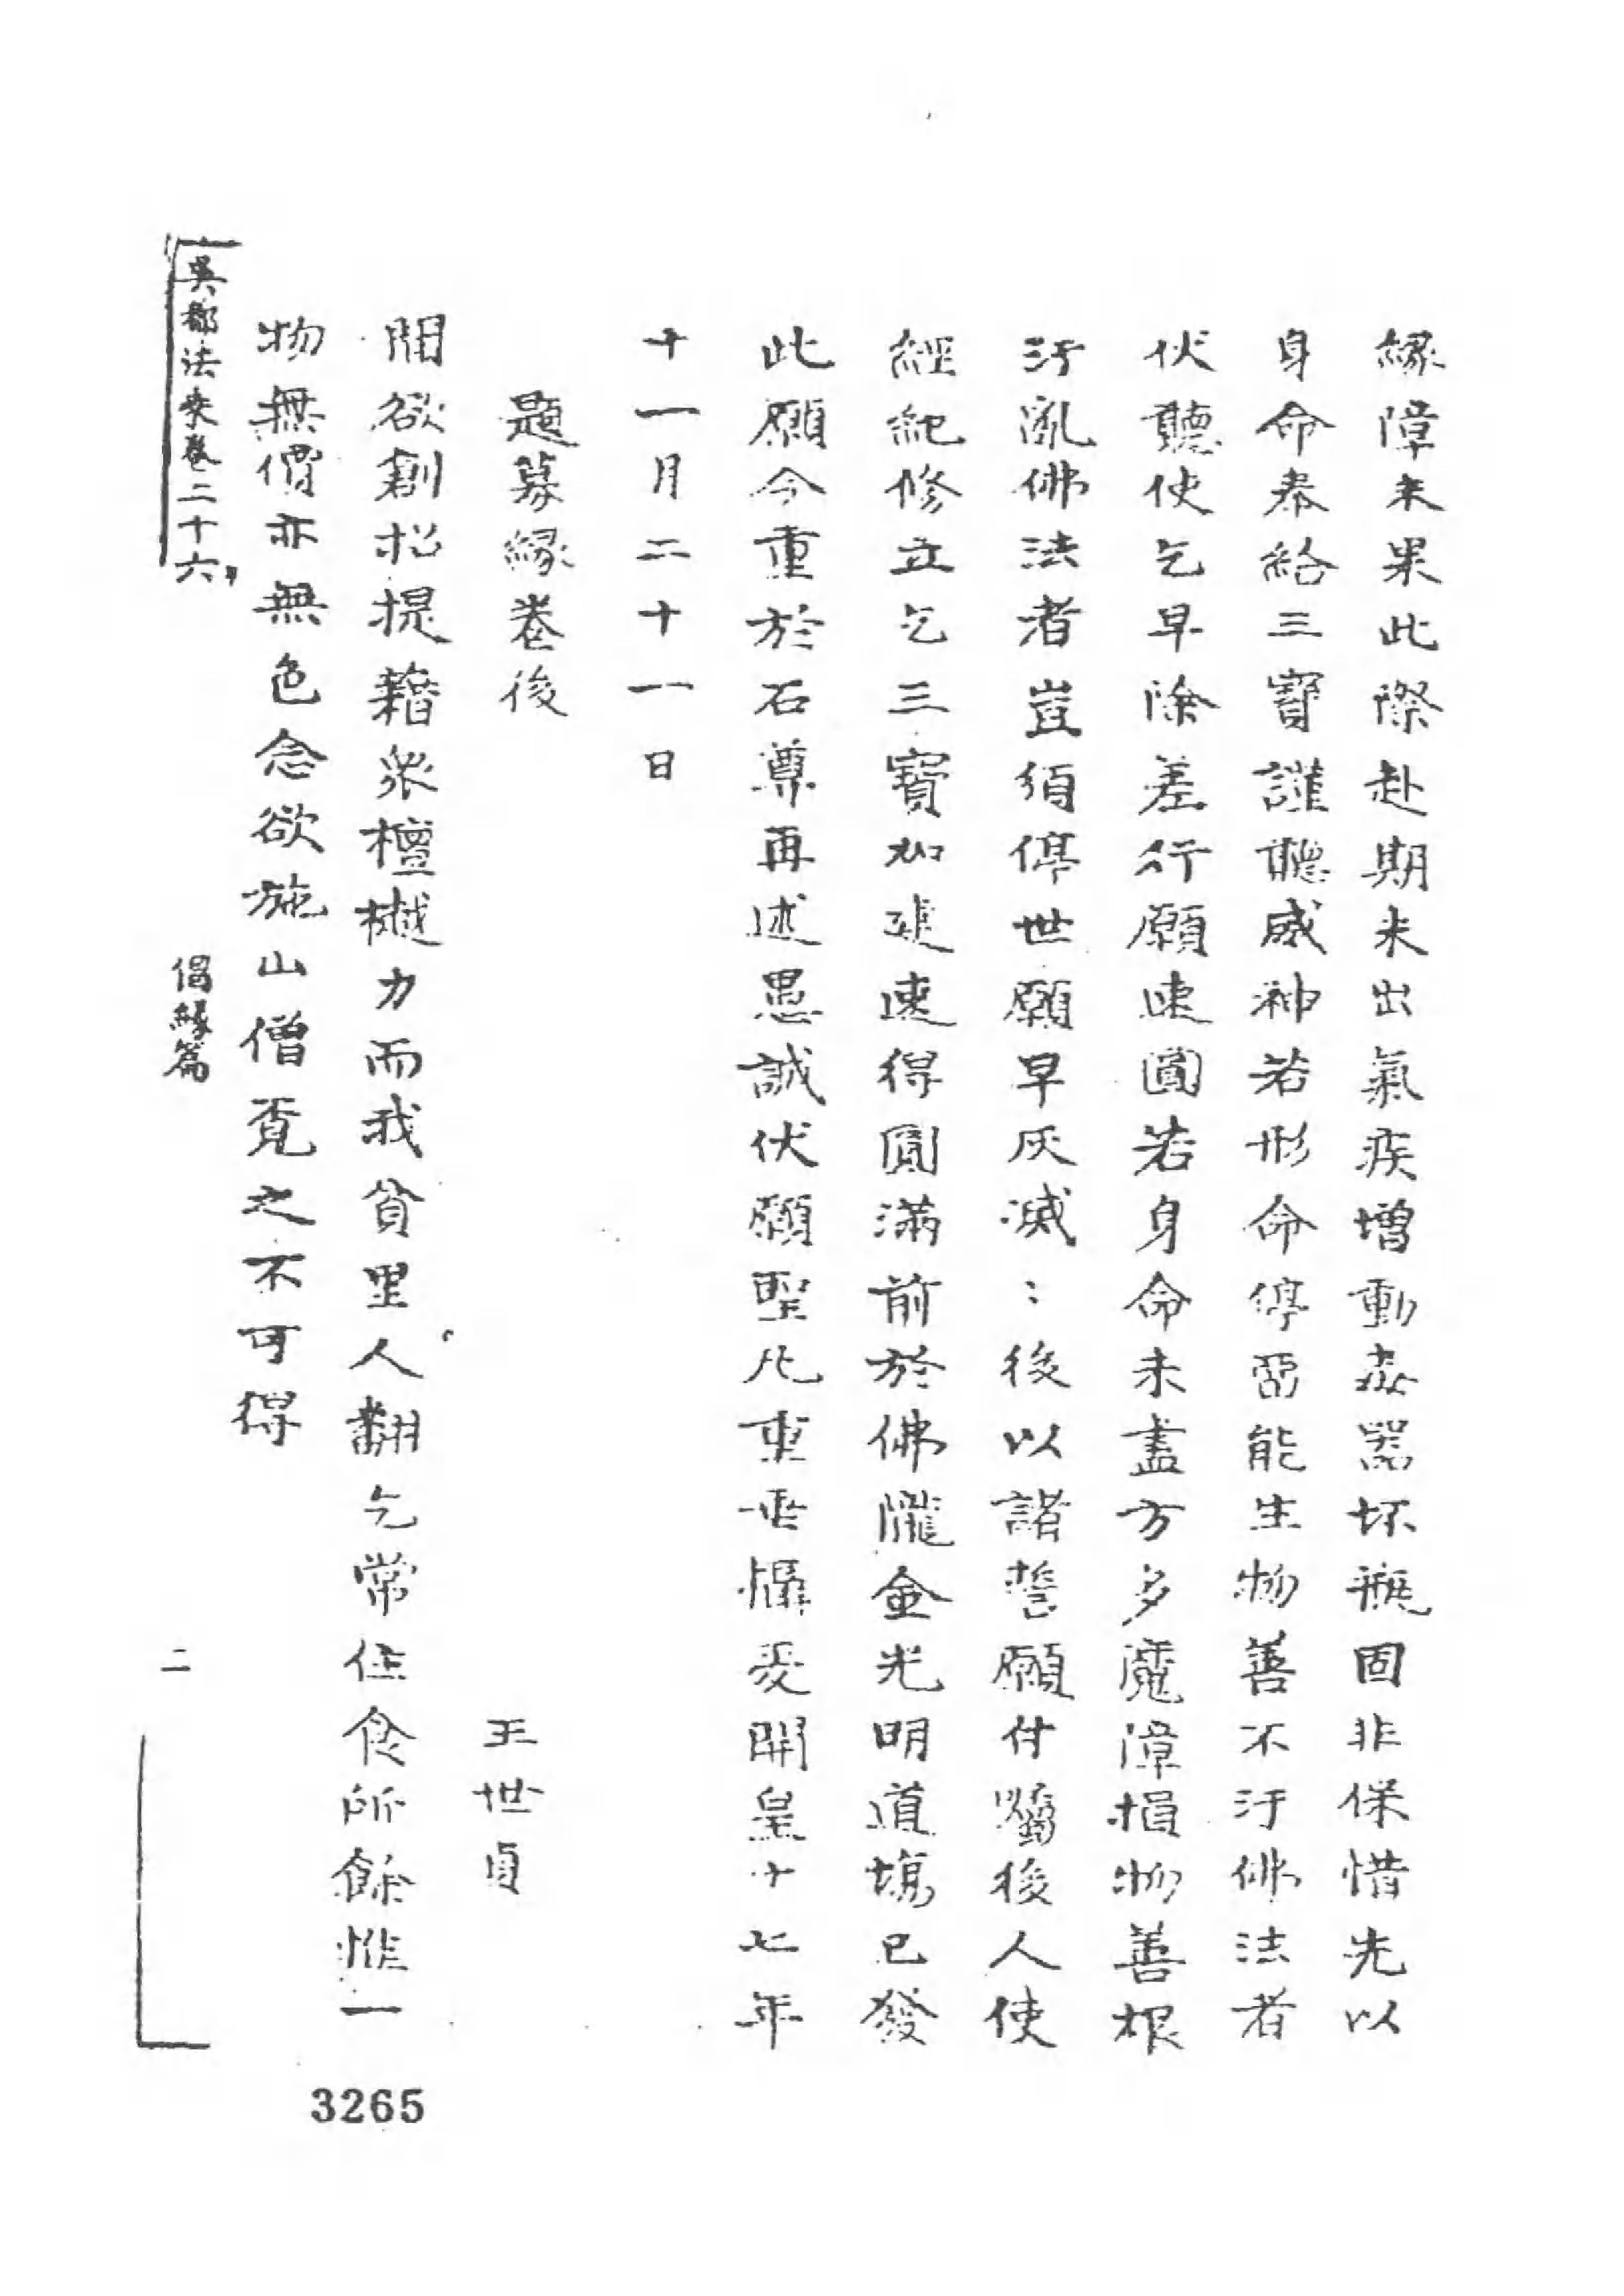 緣障未果此際赴期未出氣疾增動毒器坏瓶固非保惜先以
身命奉給三寶謹聽威神若形命停留能生物善不汙佛法者
伏聽使乞早除差行願速圓若身命未盡方多魔障損物善根
汙亂佛法者豈須停世願早灰滅：後以諸誓願付囑後人使
經紀修立乞三寶加建速得圓滿前於佛隴金光明道場已發
此願今重於石尊再述愚誠伏願聖凡重垂懾受開皇十七年
十一月二十一日
題募緣卷後
王世貞
開欲創招提藉衆檀樾力而我貧里人翻乞常住食所餘惟一
物無價亦無色念欲施山僧覔之不可得
吳都法乘卷二十六
倡緣篇
二
3265